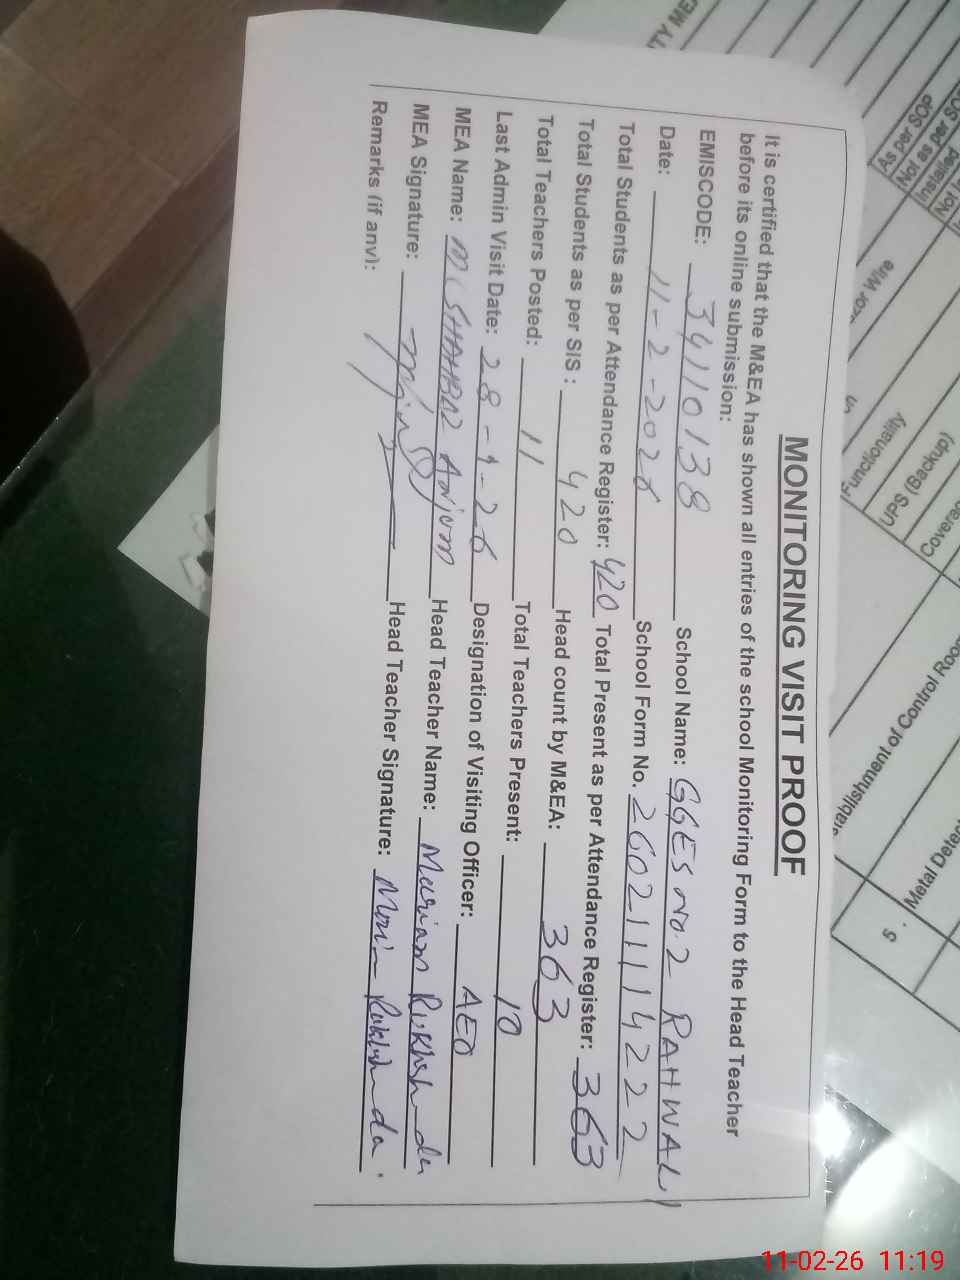 MONITORING VISIT PROOF
It is certified that the M&EA has shown all entries of the school Monitoring Form to the Head Teacher
before its online submission:
EMISCODE: 34110138 School Name: GGES No. 2 RAHWALI
Date: 11-2-2026 School Form No. 26021114222
Total Students as per Attendance Register: 420 Total Present as per Attendance Register: 363
Total Students as per SIS : 420 Head count by M&EA: 363
Total Teachers Posted: 11 Total Teachers Present: 10
Last Admin Visit Date: 28-1-26 Designation of Visiting Officer: AEO
MEA Name: M. SHAHBAZ Anjum Head Teacher Name: Mariam Rukhshanda
MEA Signature: Head Teacher Signature:
Remarks (if any):
As per SOP
Not as per SO
Installed
Not In
zor Wire
Functionality
UPS (Backup)
Coverag
stablishment of Control Room
Metal Detec
5.
11-02-26 11:19